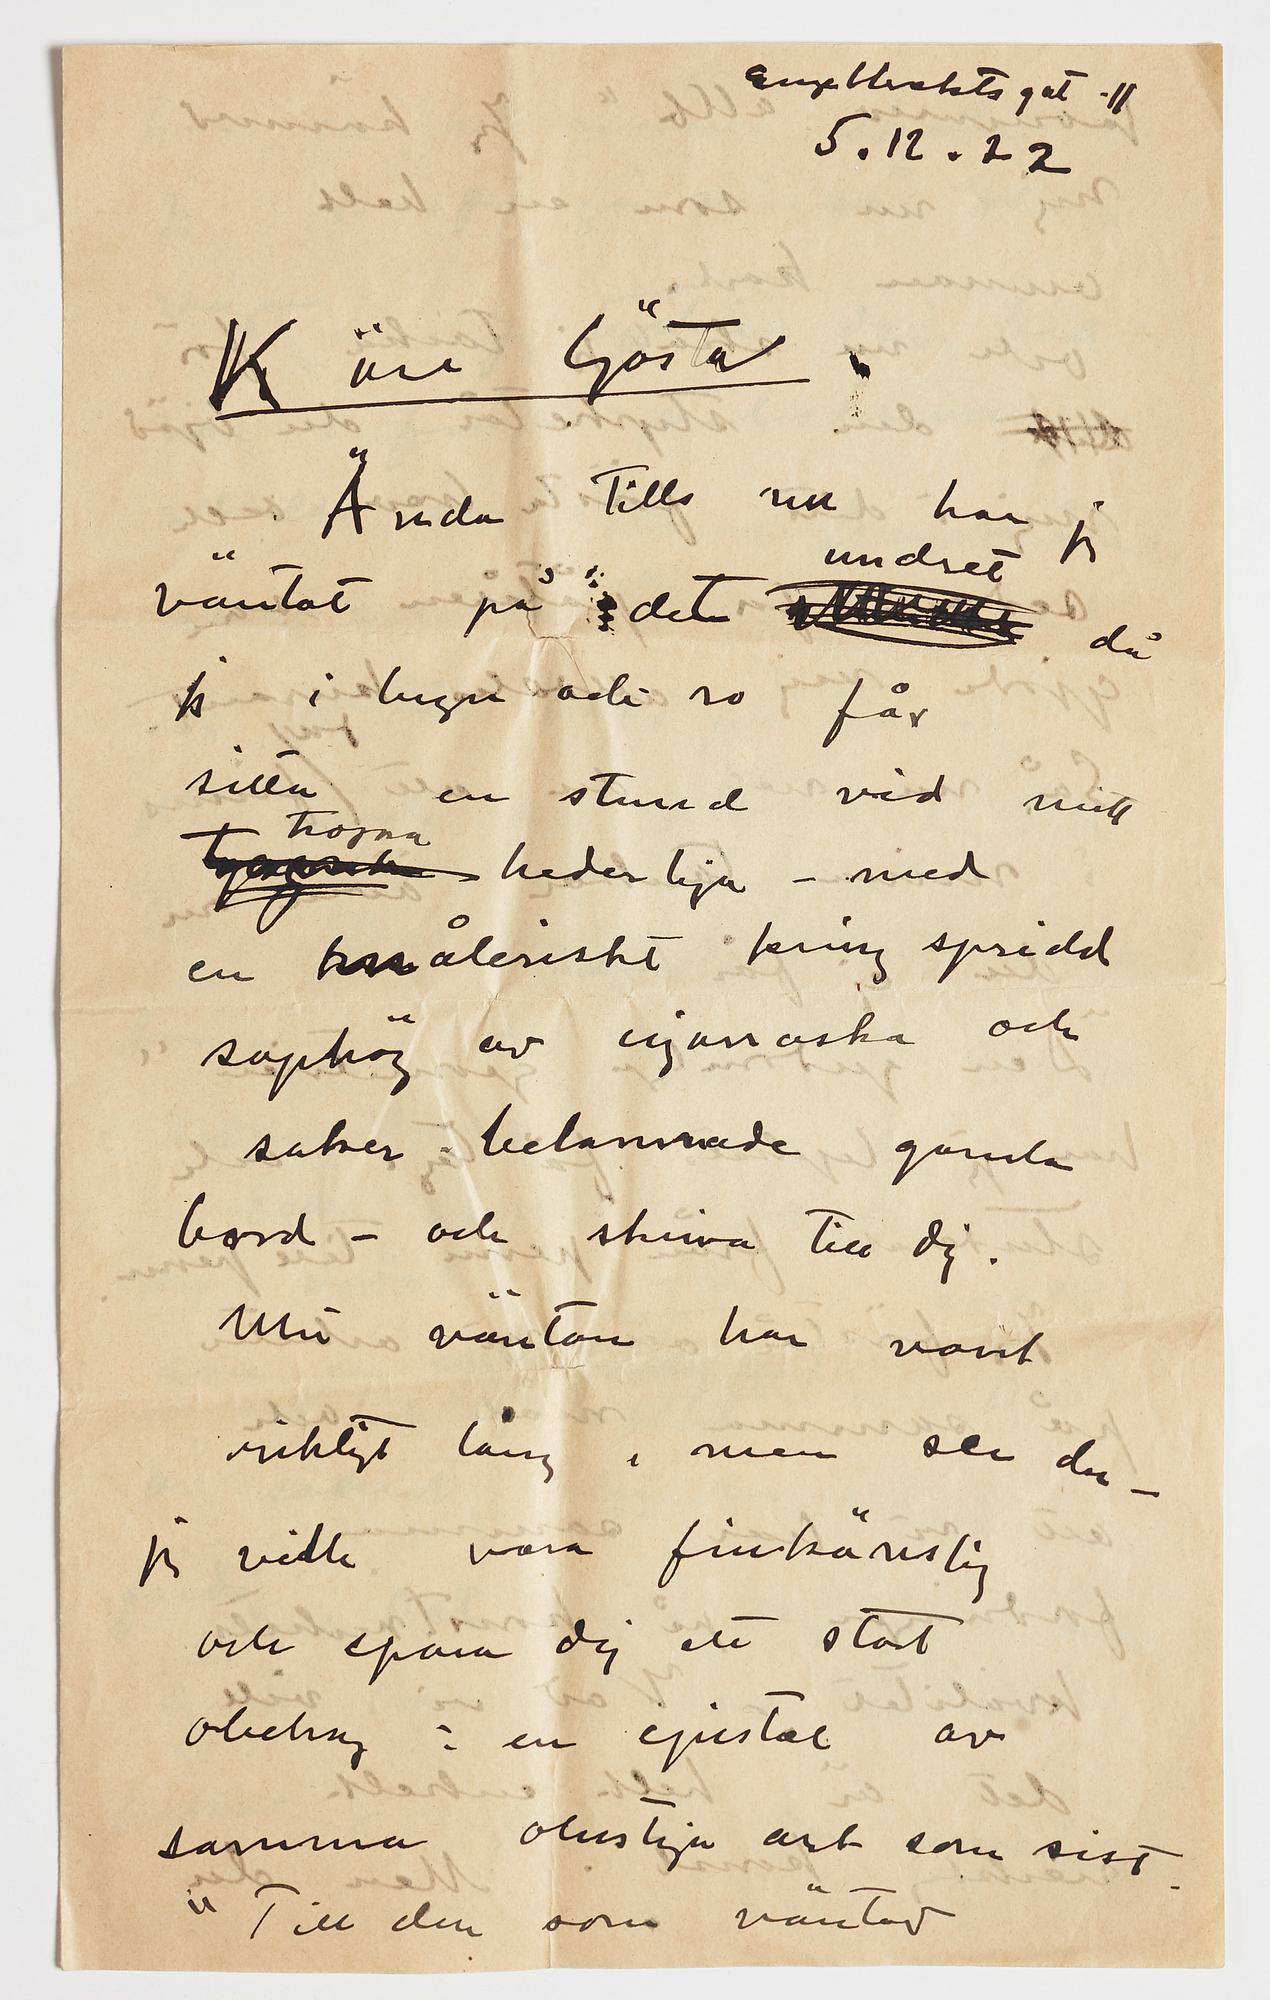 Engelbrektsgat 11
5.12.22
Käre Gösta!
Ända tills nu har jg
väntat på det undret då
jg i lugn och ro får
sitta en stund vid mitt
trogna hederliga – med
en måleriskt kring spridd
sophög av cigarraska och
saker belamrade gamla
bord – och skriva till dig.
Min väntan har varit
riktigt lång, men ser du –
jg ville vara finkänslig
och spara dig ett stort
obehag : en epistel av
samma olustiga art som sist.
"Till den som väntar